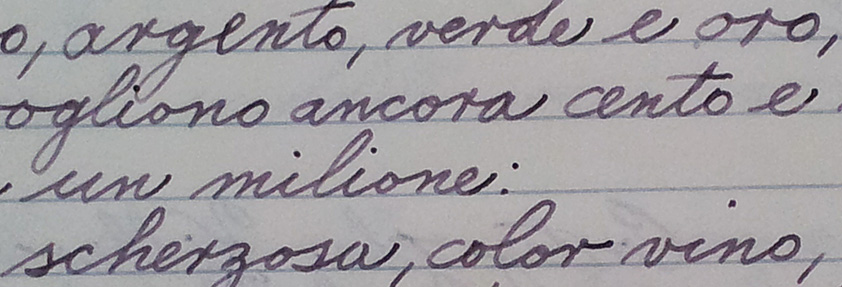 o, argento, verde e oro,
ogliono ancora cento e
un milione:
scherzosa, color vino,